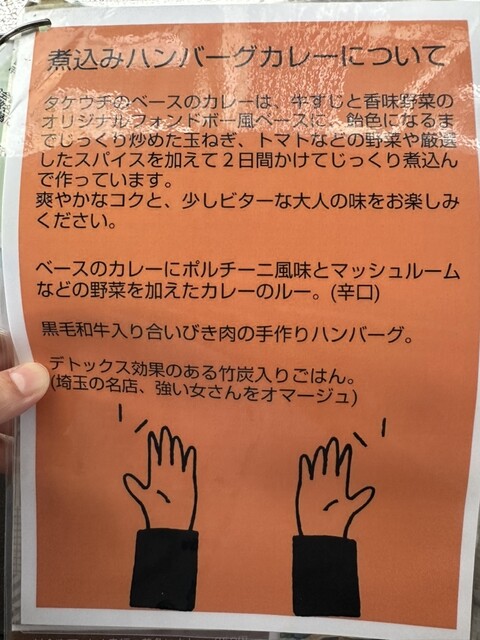 煮込みハンバーグカレーについて
タケウチのベースのカレーは、牛すじと香味野菜の
オリジナルフォンドボー風ベースに、飴色になるま
でじっくり炒めた玉ねぎ、トマトなどの野菜や厳選
したスパイスを加えて２日間かけてじっくり煮込ん
で作っています。
爽やかなコクと、少しビターな大人の味をお楽しみ
ください。
ベースのカレーにポルチーニ風味とマッシュルーム
などの野菜を加えたカレーのルー。(辛口)
黒毛和牛入り合いびき肉の手作りハンバーグ。
デトックス効果のある竹炭入りごはん。
(埼玉の名店、強い女さんをオマージュ)